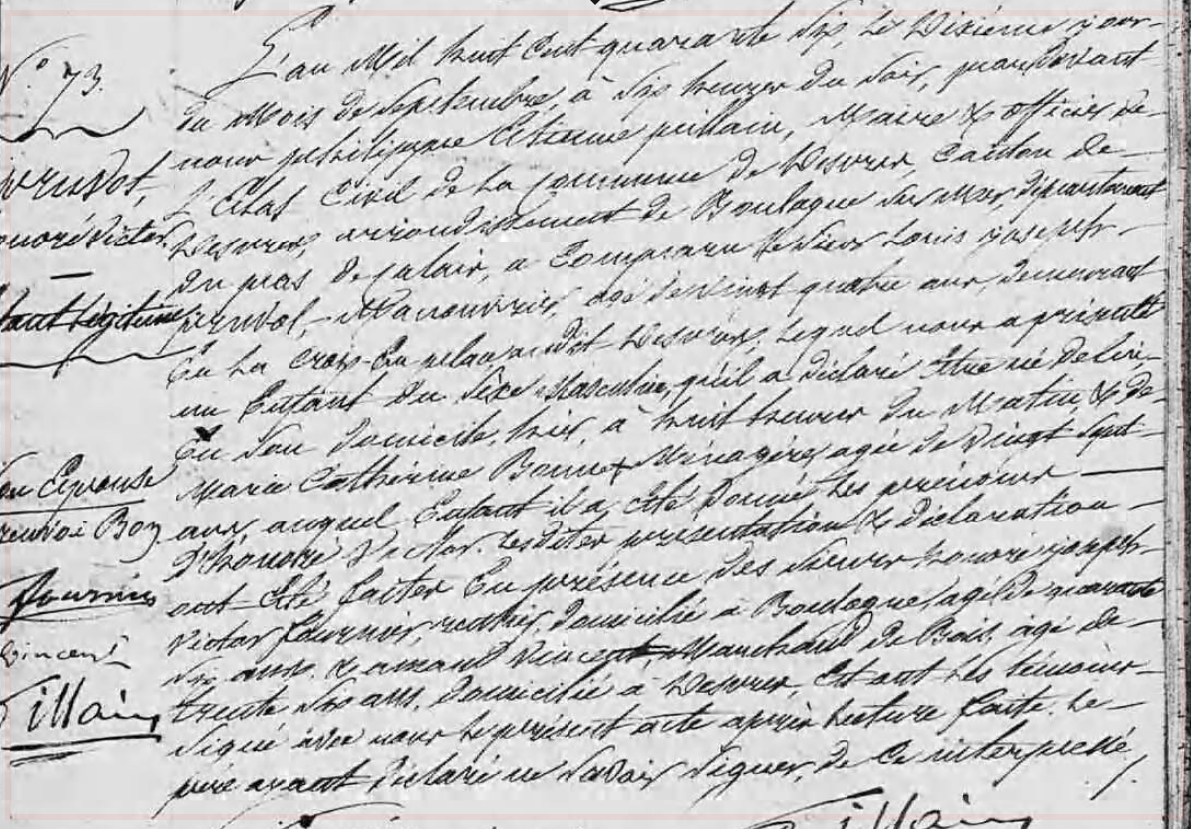 N.° 73.
Pruvot,
honoré Victor
Enfant légitime
son Epouse
pruvot Bon
fournier
Vincent
Pillain
L'an Mil huit Cent quarante Six, Le Dixième jour
du Mois de Septembre, à Six heures du Soir, pardevant
nous philippe Etienne pillain, Maire & officier de
L'Etat Civil de La Commune de Desvres, Canton de
Desvres, arrondissement de Boulogne Sur Mer, département
du pas de Calais, a Comparu le Sieur Louis joseph
pruvot, Manouvrier, agé de vingt quatre ans, demeurant
En La Croix audit Desvres, Lequel nous a présenté
un Enfant du Sexe Masculin, qu'il a déclaré Etre né de lui,
En Son domicile, hier, à huit heures du Matin, & de
Marie Catherine Bonne Ménagère agée de vingt Sept
ans, auquel Enfant il a Eté donné Les prénoms
d'honoré Victor. Lesdites présentation & déclaration
ont Eté faites En présence des Sieurs honoré joseph
Victor fournier, rentier, domicilié à Boulogne, agé de quarante
Six ans, & amand Vincent, Marchand de Bois, agé de
trente Six ans, domicilié à Desvres, Et ont Les témoins
Signé avec nous Le présent acte après Lecture faite. Le
père ayant déclaré ne Savoir Signer, de Ce interpellé.
Pillain